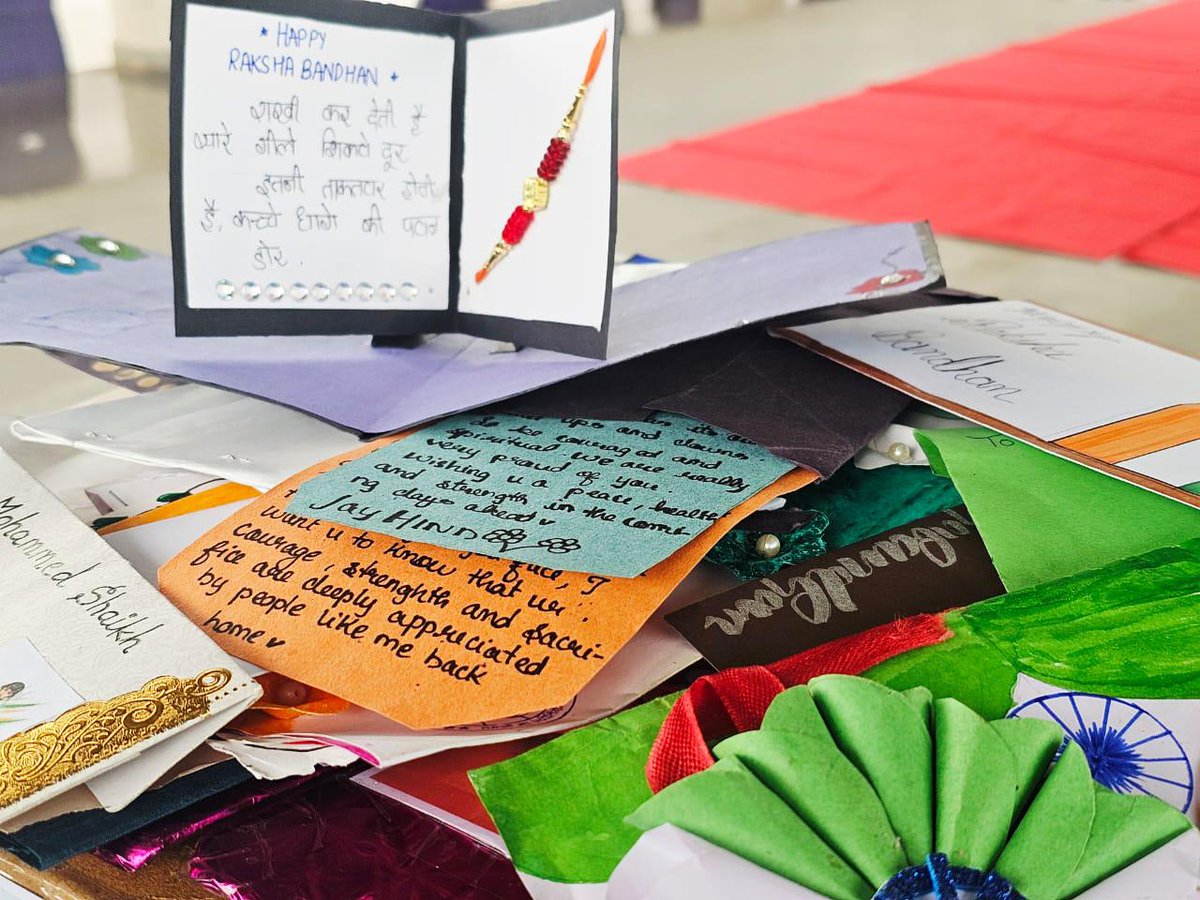 * HAPPY
RAKSHA BANDHAN *
राखी कर देती है
प्यारे गीले शिकवे दूर
इतनी ताकतवर होती
है, कच्चे धागे की पावन
डोर.
Bandhan
ups and downs
to be couraged and
spiritual we are really
very proud of you.
wishing u a peace, health
and strength in the comi-
ng days ahead
Jay HIND
want u to know that ur
courage, strenghth and sacri-
fice are deeply appreciated
by people like me back
home
Mohammed Shaikh